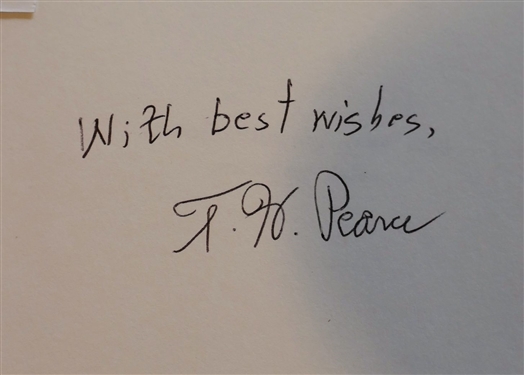 With best wishes,
T. W. Pearce